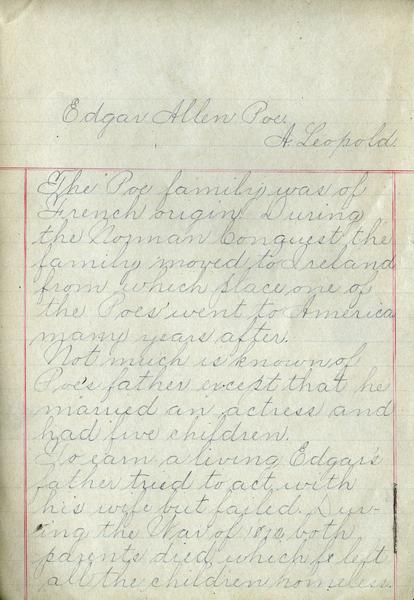 Edgar Allen Poe
A. Leopold
The Poe family was of
French origin. During
the Norman Conquest the
family moved to Ireland
from which place one of
the Poes' went to America
many years after.
Not much is known of
Poe's father except that he
married an actress and
had five children.
To earn a living Edgar's
father tried to act with
his wife but failed. Dur-
ing the War of 1812 both
parents died, which left
all the children homeless.